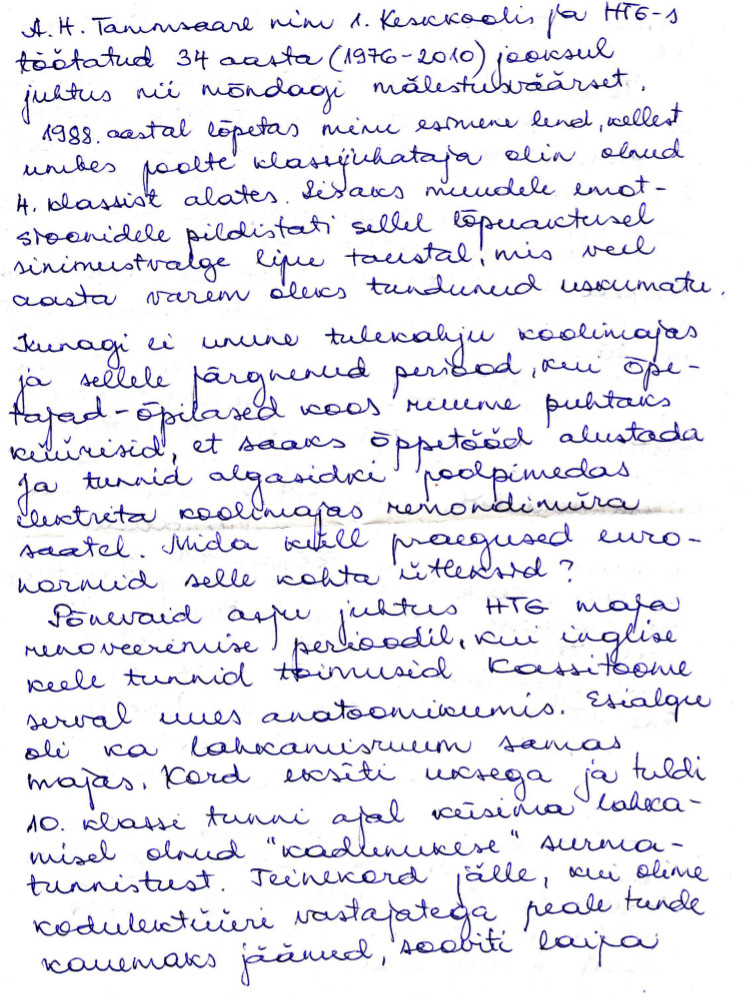 A. H. Tammsaare nim 1. Keskkoolis ja HTG-s
töötatud 34 aasta (1976-2010) jooksul
juhtus nii mõndagi mälestusväärset.
1988. aastal lõpetas minu esimene lend, kellest
umbes poolte klassijuhataja olin olnud
4. klassist alates. Lisaks muudele emot-
sioonidele pildistati sellel lõpuaktusel
sinimustvalge lipu taustal, mis veel
aasta varem oleks tundunud uskumatu.
Kunagi ei unune tulekahju koolimajas
ja sellele järgnenud periood, kui õpe-
tajad-õpilased koos ruume puhtaks
küürisid, et saaks õppetööd alustada
ja tunnid algasidki poolpimedas
elektrita koolimajas remondimüra
saatel. Mida küll praegused euro-
normid selle kohta ütleksid?
Põnevaid asju juhtus HTG maja
renoveerimise perioodil, kui inglise
keele tunnid toimusid Kassitoome
serval uues anatoomikumis. Esialgu
oli ka lahkamisruum samas
majas. Kord eksiti uksega ja tuldi
10. klassi tunni ajal küsima lahka-
misel olnud "kadunukese" surma-
tunnistust. Teinekord jälle, kui olime
kodulektüüri vastajatega peale tunde
kauemaks jäänud, sooviti laipa